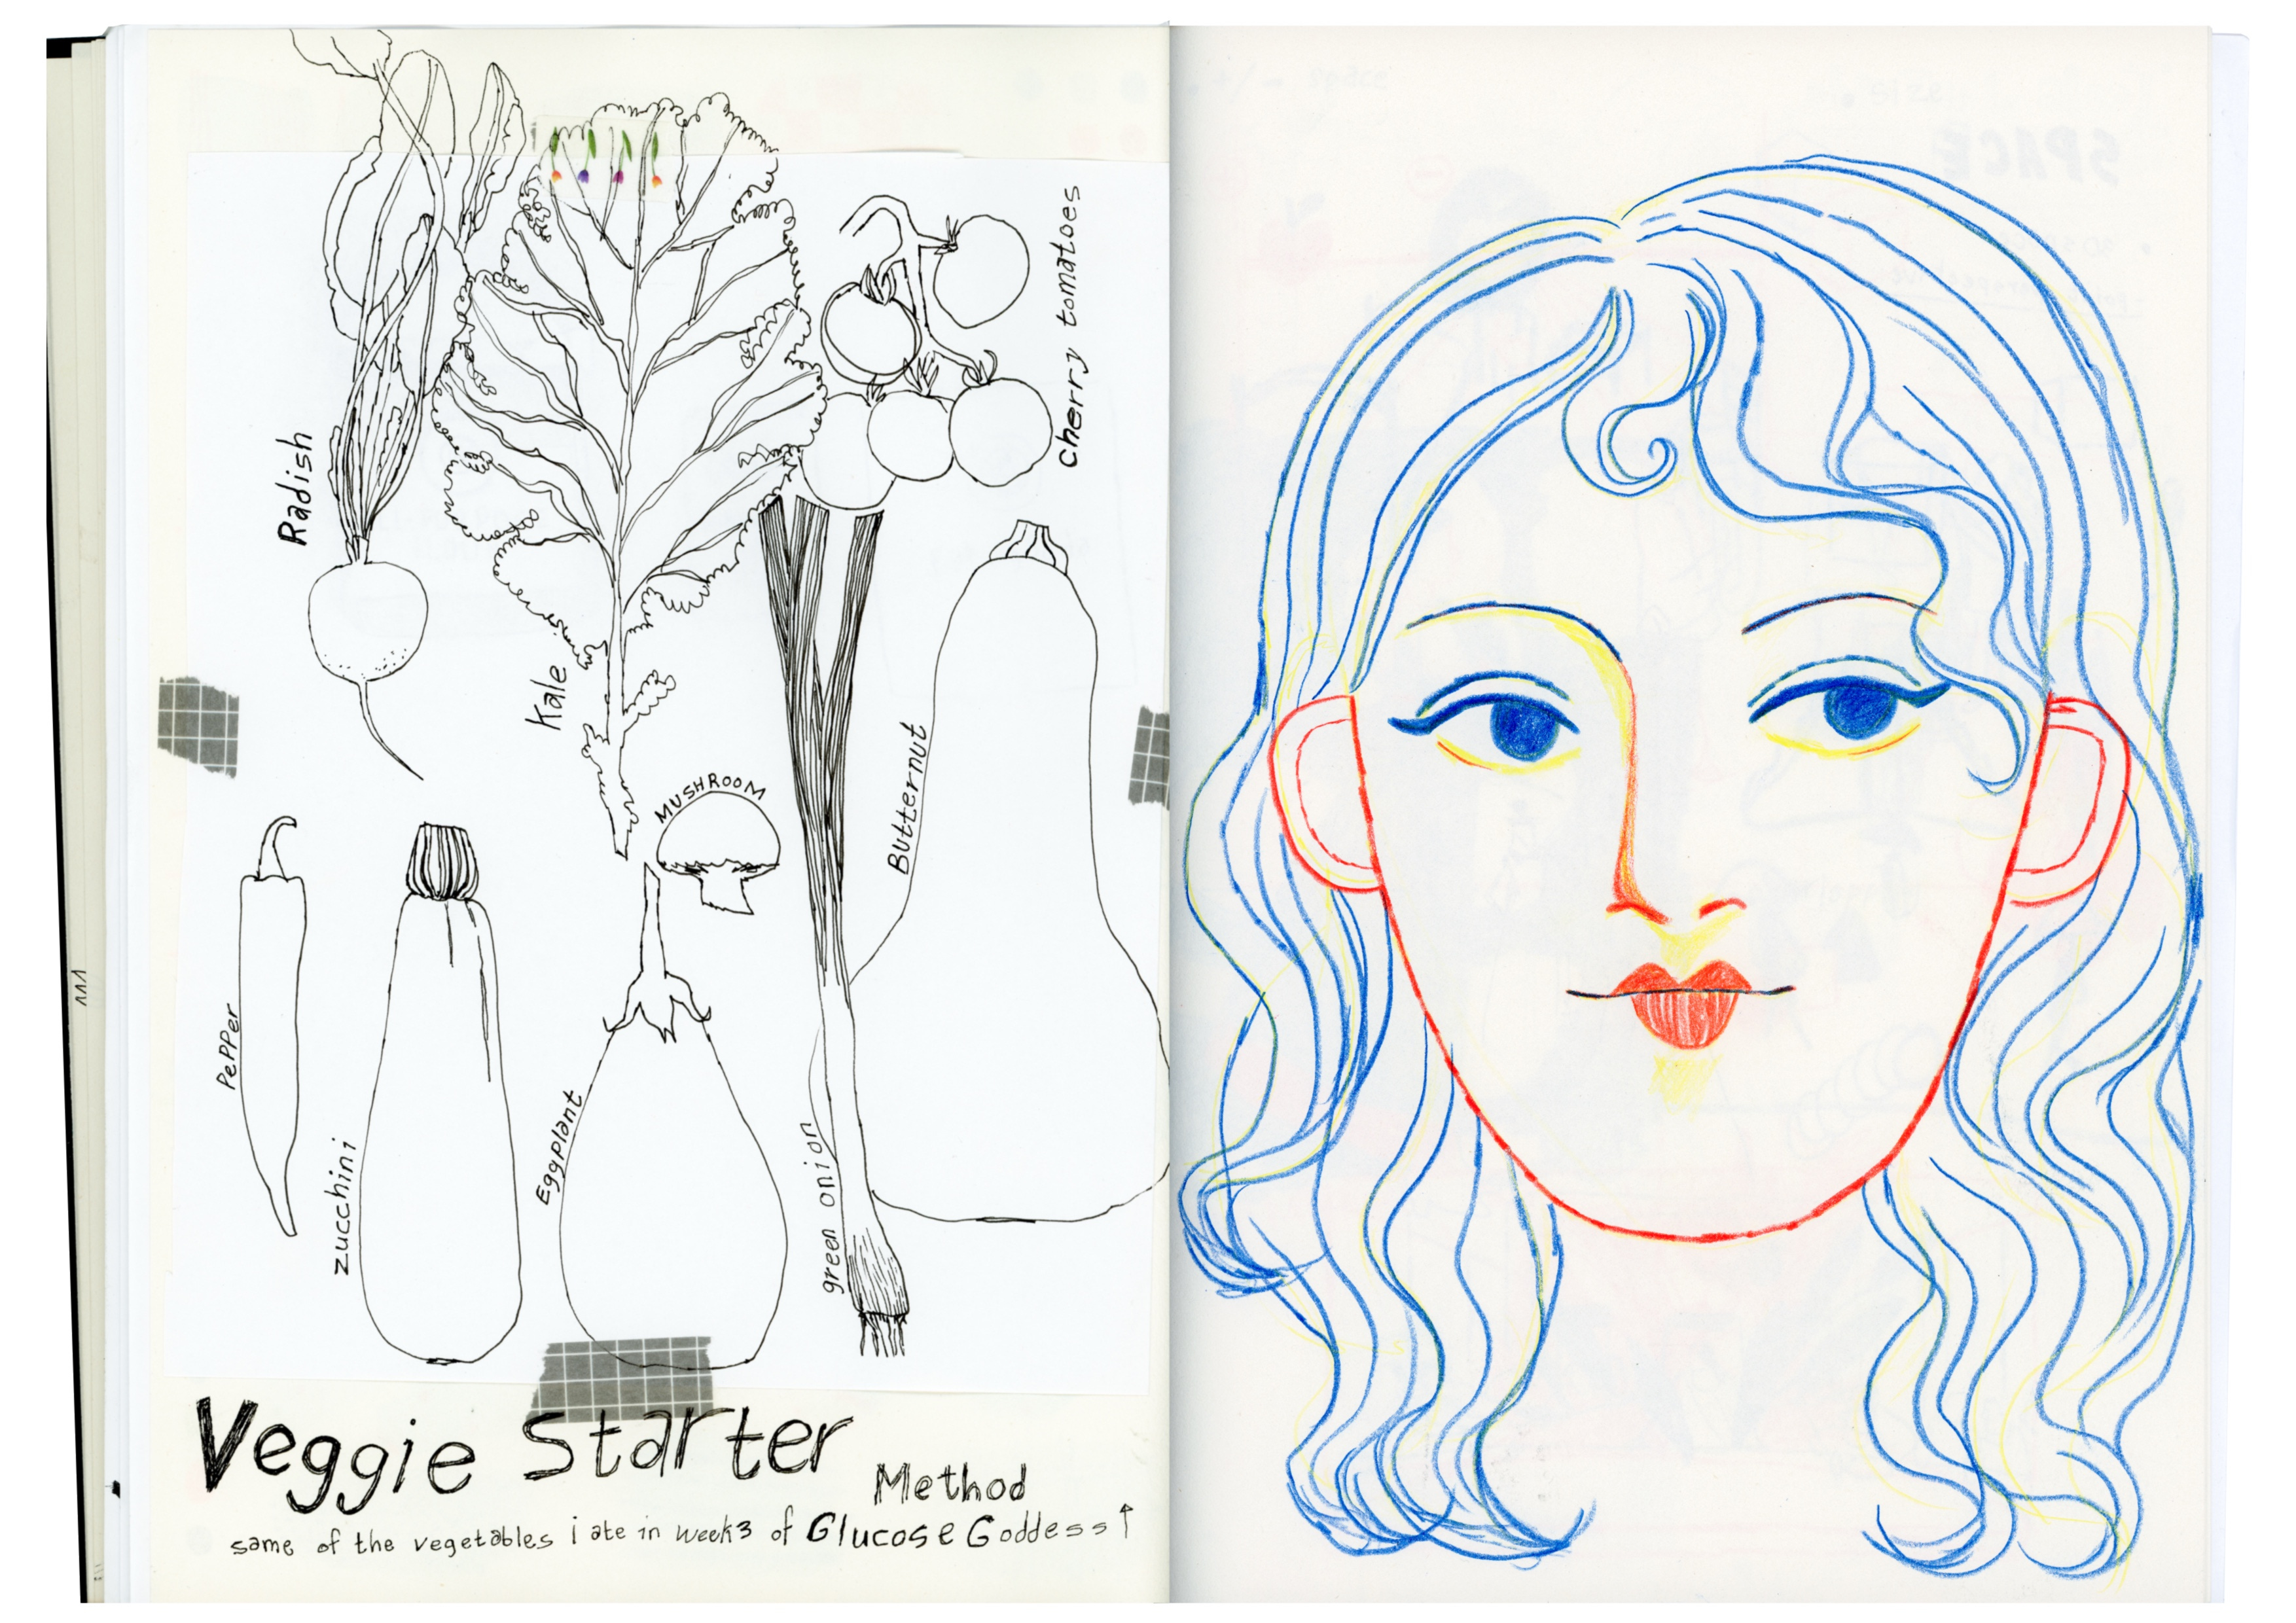 Radish
Kale
Cherry tomatoes
MUSHROOM
Butternut
Pepper
zucchini
Eggplant
green onion
Veggie Starter
Method
same of the vegetables i ate in week3 of Glucose Goddess ↑
SPACE